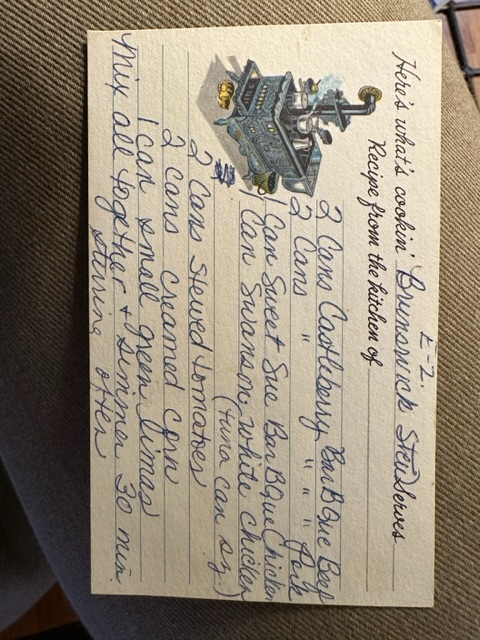 E-Z.
Here's what's cookin' Brunswick Stew Serves
Recipe from the kitchen of
2 Cans Castleberry BarBQue Beef
2 Cans " " " Pork
1 Can Sweet Sue BarBQue Chicken
1 Can Swanson white chicken
(tuna can sz.)
2 Cans Stewed tomatoes
2 cans creamed corn
1 can small green limas
Mix all together + simmer 30 min.
stiring often